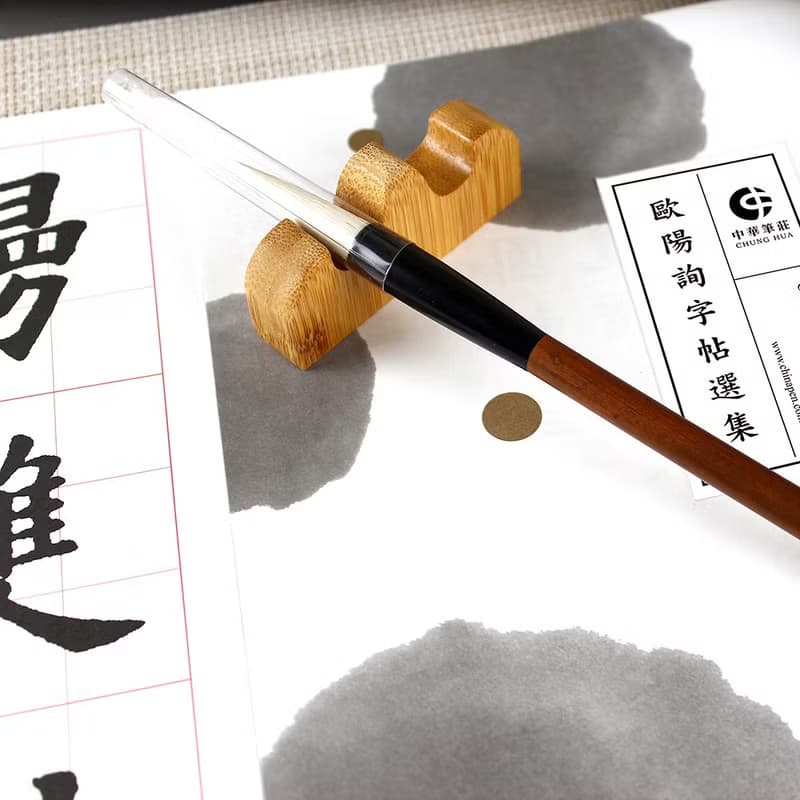 歐陽詢字帖選集
中華筆莊
CHUNG HUA
www.chinapen.com